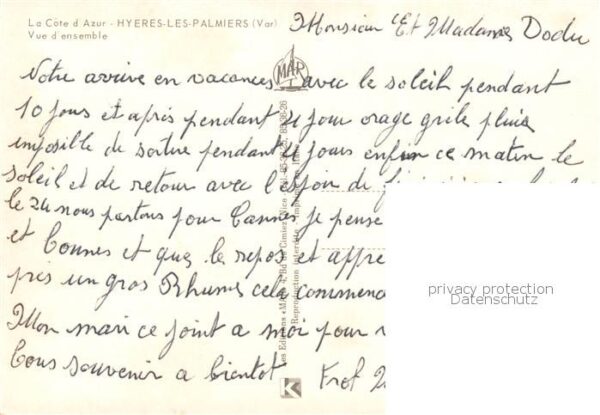 La Côte d'Azur - HYERES-LES-PALMIERS (Var)
Vue d'ensemble
Monsieur Et Madame Dodu
MAR
Notre arrive en vacances avec le soleil pendant
10 jours et après pendant 4 jour orage grile pluie
imposible de sortire pendant 4 jours enfin ce matin le
soleil et de retour avec l'espoir de
le 24 nous partons pour Cannes je pense
et Connes et que le repos et
pris un gros Rhume cela
Mon mari ce joint a moi pour
bous souvenir a bientot
privacy protection
Datenschutz
Les Editions «MAR»
Reproduction interdite
K